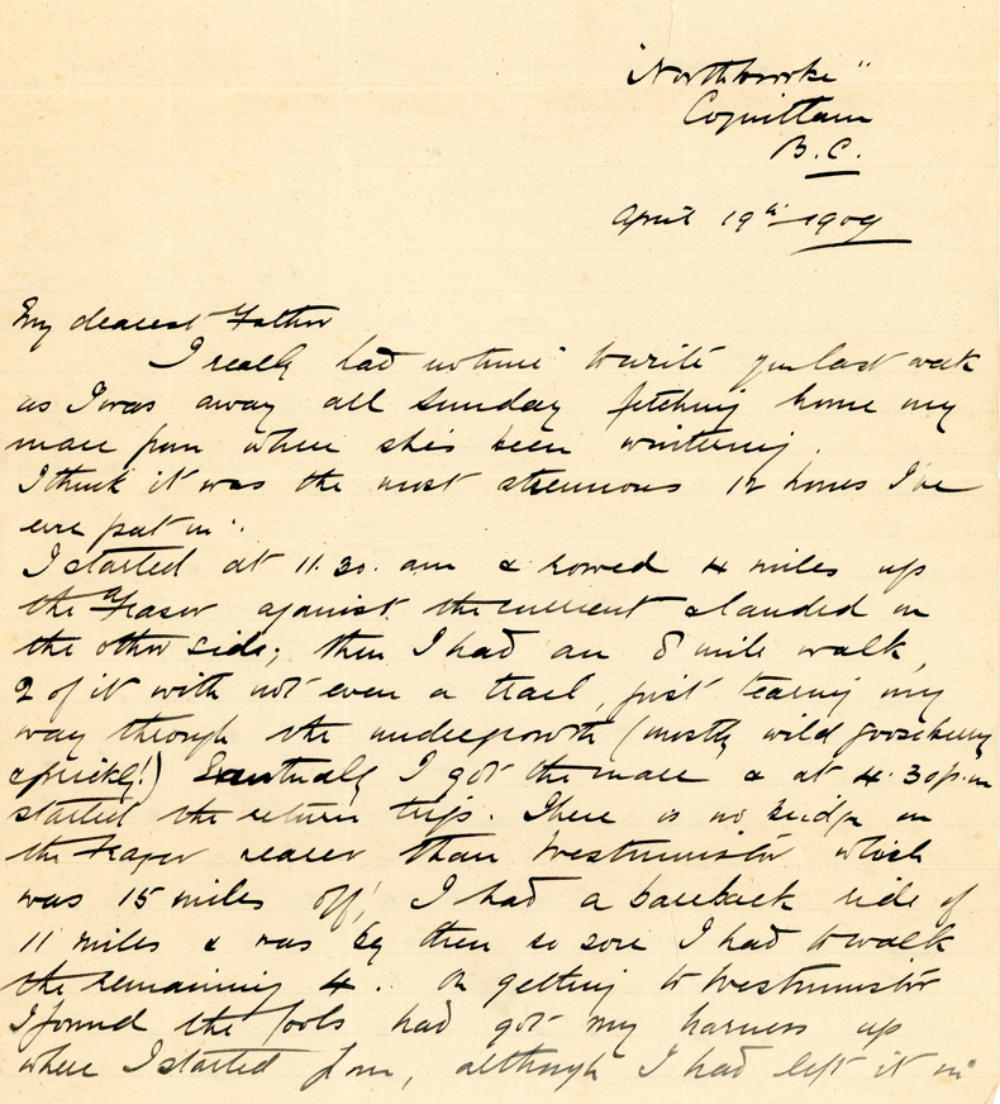 "Northbrooke"
Coquitlam
B.C.
April 19th 1909
My dearest Father
I really had no time to write you last week
as I was away all Sunday fetching home my
mare from where she's been wintering.
I think it was the most strenuous 12 hours I've
ever put in.
I started at 11.30. am & rowed 4 miles up
the Fraser against the current & landed on
the other side; then I had an 8 mile walk,
2 of it with not even a trail, just tearing my
way through the undergrowth (mostly wild gooseberry
& prickly!) Eventually I got the mare & at 4.30 p.m
started the return trip. There is no bridge on
the Fraser nearer than Westminster which
was 15 miles off! I had a bareback ride of
11 miles & was by then so sore I had to walk
the remaining 4. On getting to Westminster
I found the fools had got my harness up
where I started from, although I had left it in